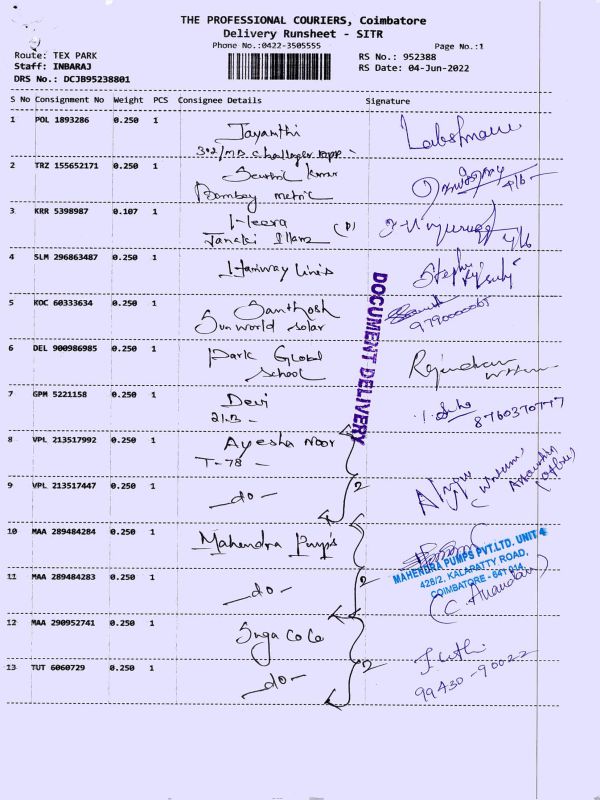 THE PROFESSIONAL COURIERS, Coimbatore
Delivery Runsheet - SITR
Phone No.:0422-3505555
Page No.:1
Route: TEX PARK
Staff: INBARAJ
DRS No.: DCJB95238801
RS No.: 952388
RS Date: 04-Jun-2022
S No Consignment No Weight PCS Consignee Details Signature
1 POL 1893286 0.250 1 Jayanthi
302/MD challenger
2 TRZ 155652171 0.250 1 Senthil kumar
Bombay metric 4/6-
3 KRR 5398987 0.107 1 Heera
Janaki Illam (P) 4/6
4 SLM 296863487 0.250 1 Hamway Lines
5 KOC 60333634 0.250 1 Santhosh
Sun world solar
DOCUMENT DELIVERY
6 DEL 900986985 0.250 1 Park Global
School Rajendran
7 GPM 5221158 0.250 1 Devi
21.B - 8760370777
8 VPL 213517992 0.250 1 Ayesha Noor
T-78 -
9 VPL 213517447 0.250 1 -do- 2
10 MAA 289484284 0.250 1 Mahendra Pumps
MAHENDRA PUMPS PVT.LTD. UNIT 4
428/2, KALARATTY ROAD,
COIMBATORE - 641 014.
11 MAA 289484283 0.250 1 -do- 2
(C. Anandan)
12 MAA 290952741 0.250 1 Suga CoCo
13 TUT 6060729 0.250 1 -do- 2
99430-90022